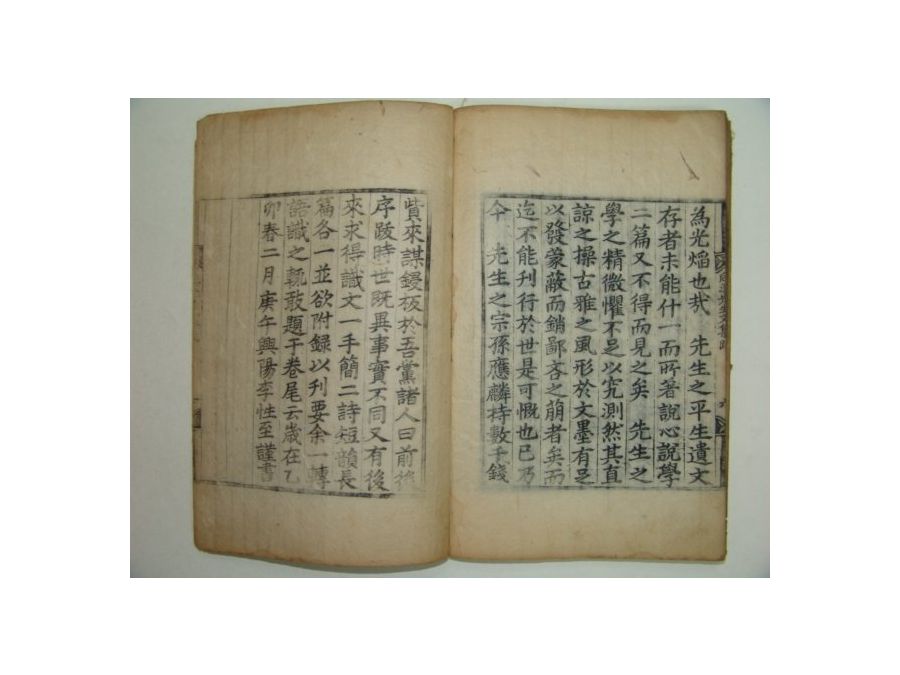 為光焰也哉 先生之平生遺文
存者未能什一而所著說心說學
二篇又不得而見之矣 先生之
學之精微懼不足以究測然其直
諒之操古雅之風形於文墨有足
以發蒙蔽而銷鄙吝之萌者矣而
迄不能刊行於世是可慨也已乃
今 先生之宗孫應麟持數千錢
貲來謀鋟板於吾黨諸人曰前後
序跋時世既異事實不同又有後
來求得識文一手簡二詩短韻長
篇各一並欲附錄以刊要余一轉
語識之輒敢題于卷尾云歲在乙
卯春二月庚午興陽李性至謹書